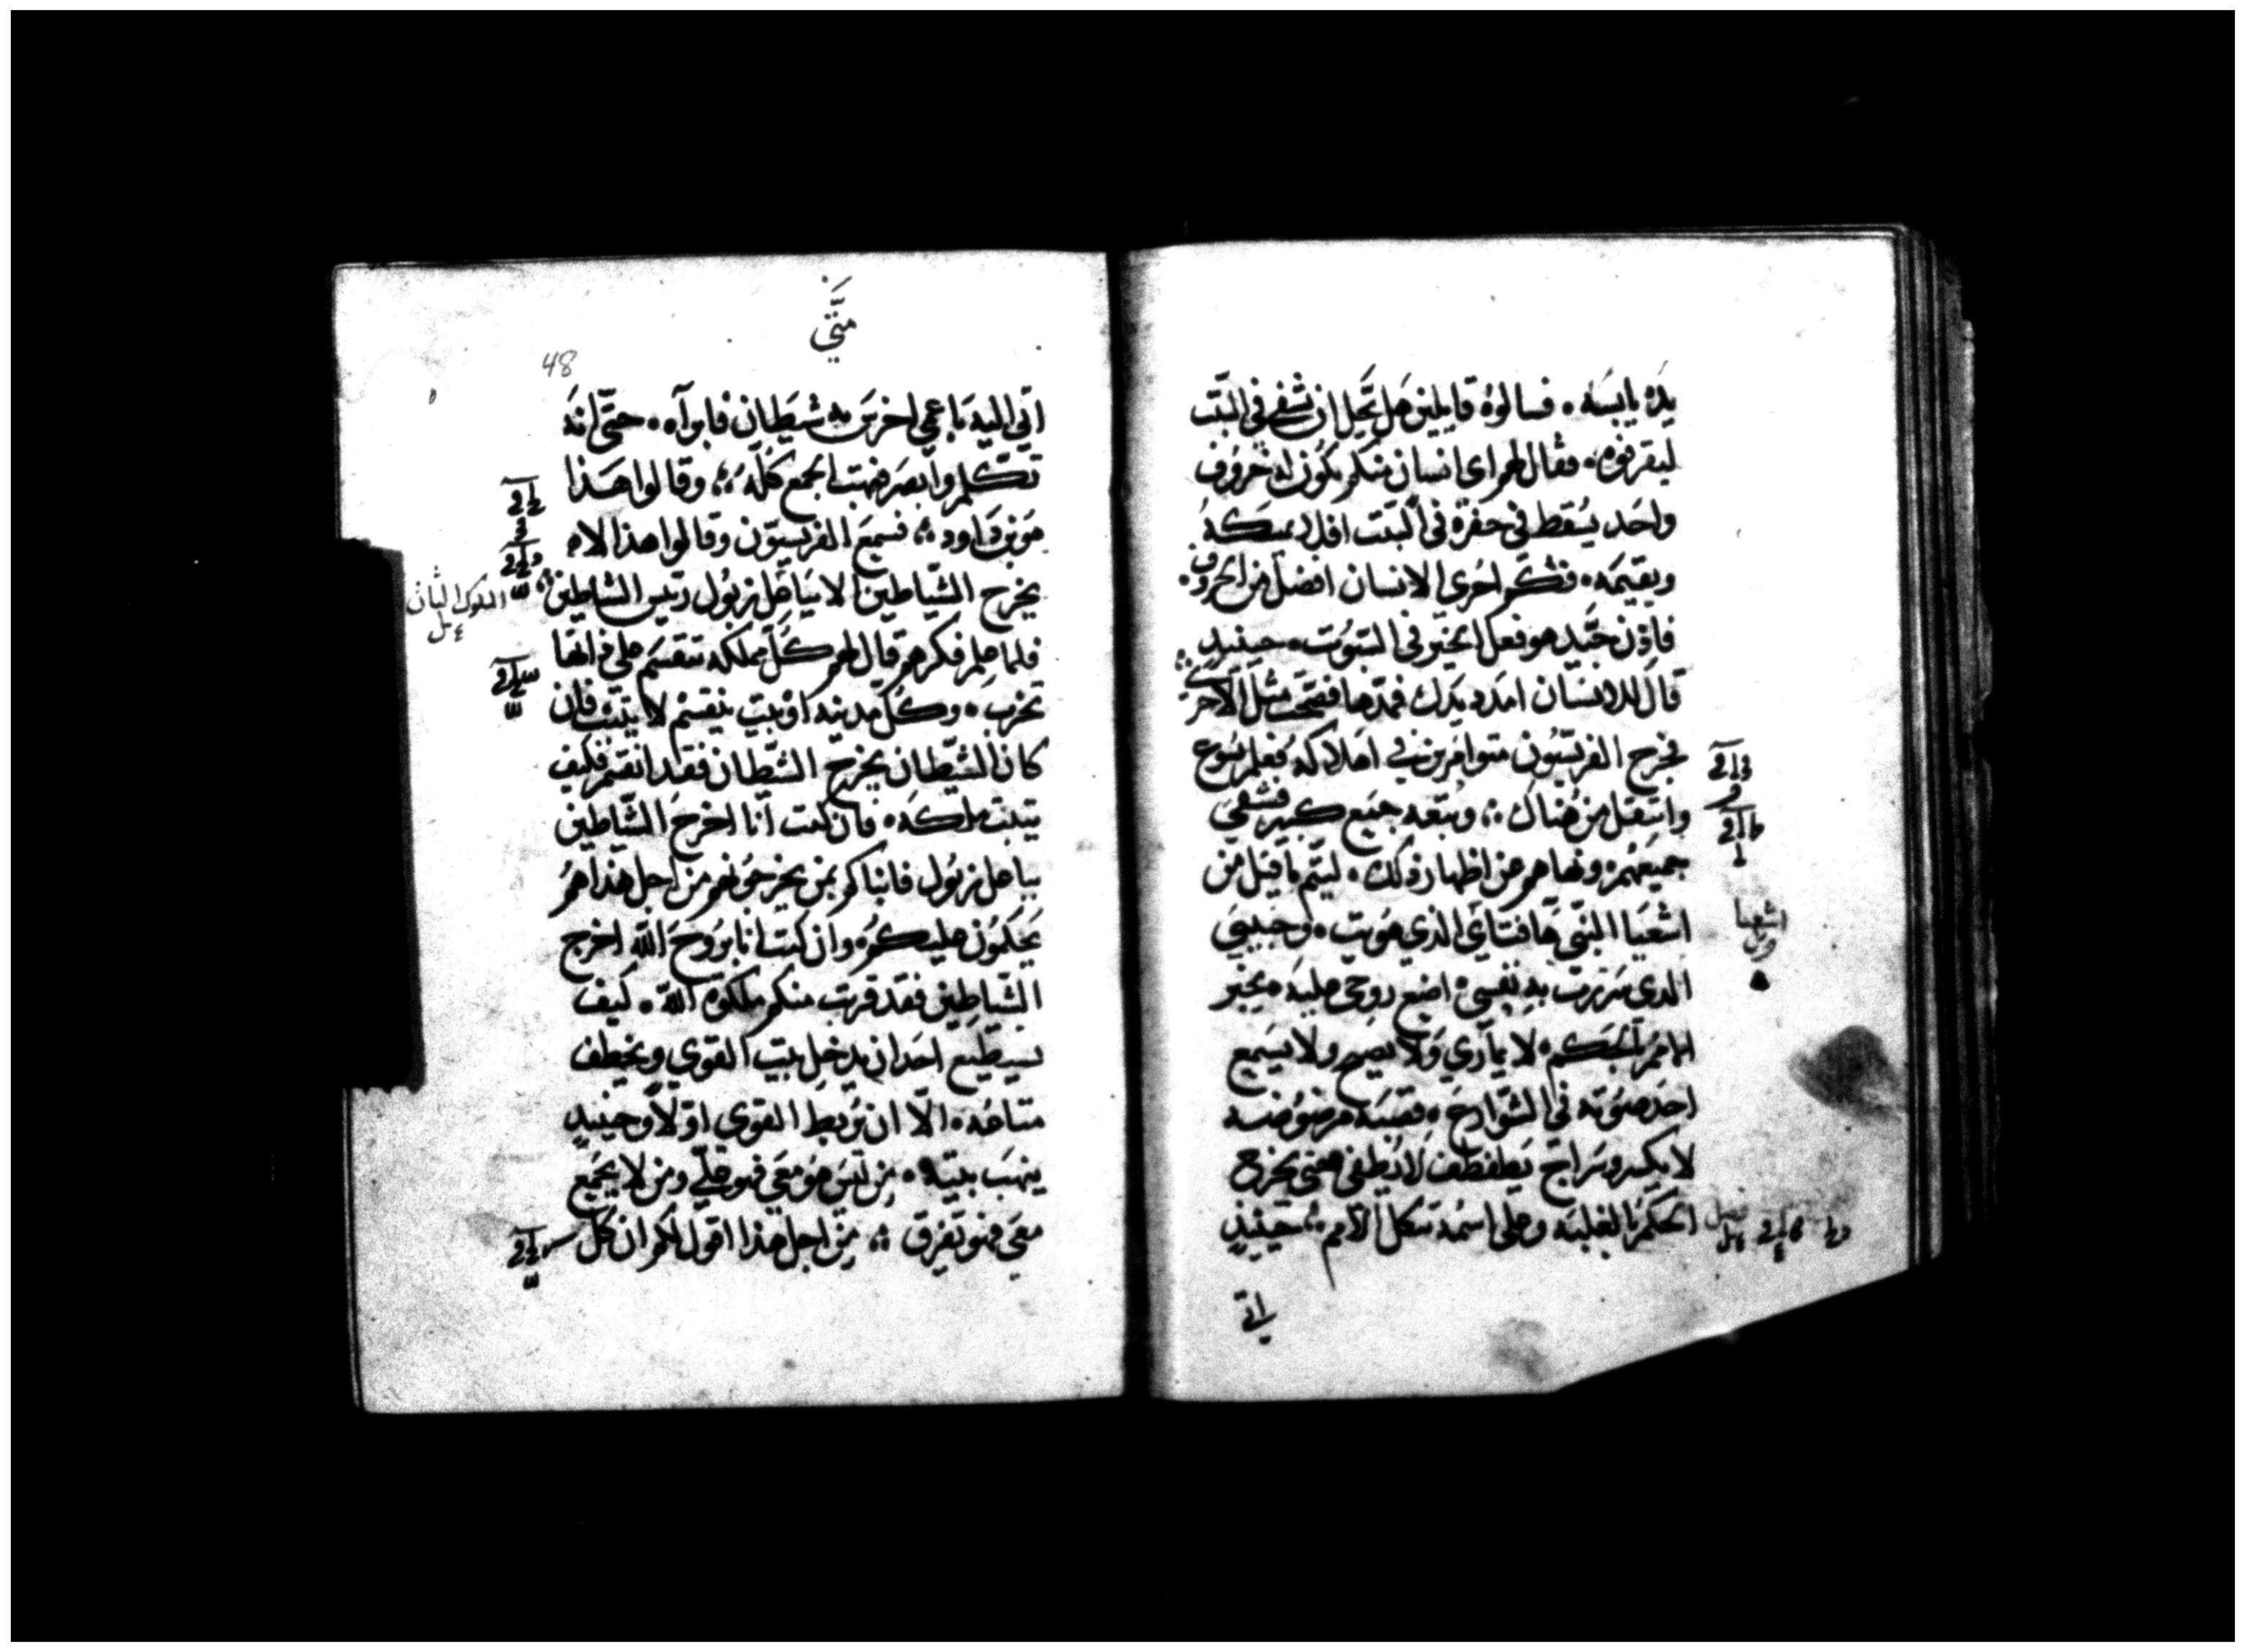 يده يابسه. فسالوه قايلين هل يحل ان تشفى في السبت
ليقرفوه. فقال لهم اى انسان منكم يكون له خروف
واحد يسقط في حفرة في السبت افلا يمسكه
ويقيمه. فبكم احرى الانسان افضل من الخروف.
فاذن جيد هو فعل الخير في السبوت. حينيد
قال للانسان امدد يدك فمدها فصحت مثل الاخرى
فخرج الفريسيون متوامرين في اهلاكه فعلم يسوع
وانتقل من هناك ؛ وتبعه جميع كبير فشفى
جميعهم ونهاهم عن اظهار ذلك. ليتم ما قيل من
اشعيا النبى ها فتاى الذي هويت. وحبيبي
الدي سررت به نفسي. اضع روحي عليه. يخبر
الامم بالحكم. لا يمارى ولا يصيح ولا يسمع
احد صوته في الشوارع. قصبه مرضوضه
لا يكسر وسراج يطفطف لا يطفى حتى يخرج
الحكم بالغلبه وعلى اسمه تتكل الامم ؛ حينيذ
اتى
اشعيا
متى
48
اتى اليه باعمى اخرس به شيطان فابراه. حتى انه
تكلم وابصر فبهت الجمع كله ؛ وقالوا هذا
هو بن داود ؛ فسمع الفريسيون وقالوا هذا لا
يخرج الشياطين الا بباعل زبول رييس الشياطين
الملوك الثان
فلما علم فكرهم قال لهم كل مملكه تنقسم على ذاتها
تخرب. وكل مدينه او بيت ينقسم لا يثبت فان
كان الشيطان يخرج الشيطان فقد انقسم فكيف
يثبت ملكه. فان كنت انا اخرج الشياطين
بباعل زبول فابناكم بمن يخرجونهم من اجل هذا هم
يحكمون عليكم. وان كنت انا بروح الله اخرج
الشياطين فقد قربت منكم ملكوة الله. كيف
يسيطيع احد ان يدخل بيت القوى ويخطف
متاعه. الا ان يربط القوى اولا وحينيد
ينهب بيته. من ليس هو معي فهو علي ومن لا يجمع
معي فهو تفرق ؛ من اجل هذا اقول لكم ان كل